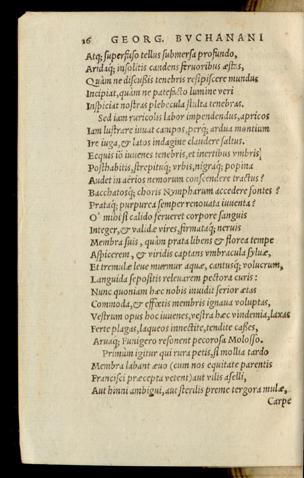 26 GEORG. BVCHANANI
Atq; superfuso tellus submersa profundo,
Aridaq; insolitis candens feruoribus æstas,
Quàm ne discussis tenebris resipiscere mundus
Incipiat, quàm ne patefacto lumine veri
Inspiciat nostras plebecula stulta tenebras.
Sed iam ruricolis labor impendendus, apricos
Iam lustrare iuuat campos, perq; ardua montium
Ire iuga, & latos indagine claudere saltus.
Ecquis iô iuuenes tenebris, et inertibus vmbris
Posthabitis, strepituq; vrbis, nigraq; popina
Audet in aërios nemorum conscendere tractus?
Bacchatosq; choris Nympharum accedere fontes?
Prataq; purpurea semper renouata iuuenta?
O' mihi si calido ferueret corpore sanguis
Integer, & validæ vires, firmataq; neruis
Membra suis, quàm prata libens & florea tempe
Aspicerem, & viridis captans vmbracula syluæ,
Et tremulæ leue murmur aquæ, cantusq; volucrum,
Languida sepositis releuarem pectora curis?
Nunc quoniam hæc nobis inuidit serior ætas
Commoda, & effœtis membris ignaua voluptas,
Vestrum opus hoc iuuenes, vestra hæc vindemia, laxas
Ferte plagas, laqueos innectite, tendite casses,
Aruaq; Funigero resonent pecorosa Molosso.
Primùm igitur qui rura petis, si mollia tardo
Membra labant æuo (cum nos equitate parentis
Francisci præcepta vetent) aut vilis aselli,
Aut hinni ambigui, aut sterilis preme tergora mulæ,
Carpe